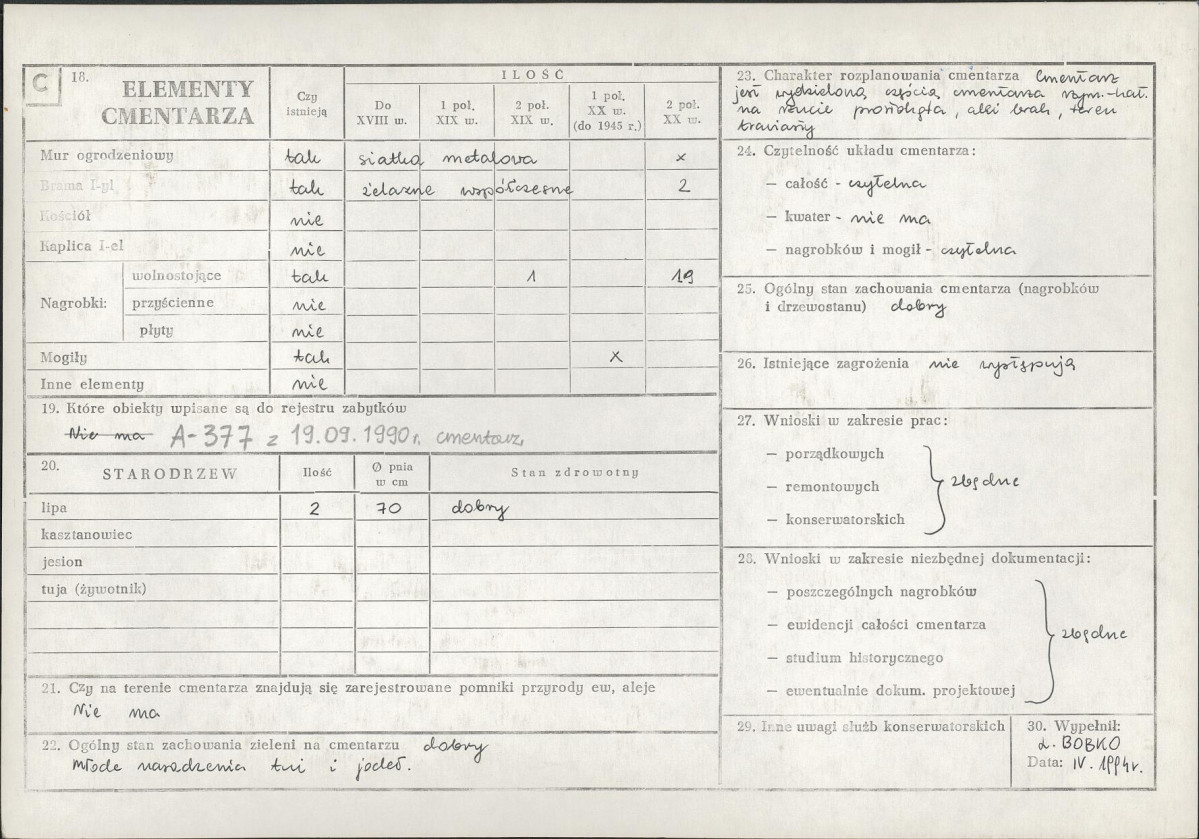 C 18. ELEMENTY CMENTARZA
Czy istnieją
ILOŚĆ
Do XVIII w.
1 poł. XIX w.
2 poł. XIX w.
1 poł. XX w. (do 1945 r.)
2 poł. XX w.
Mur ogrodzeniowy tak siatka metalowa x
Brama I-yl tak żelazne współczesne 2
Kościół nie
Kaplica I-el nie
Nagrobki: wolnostojące tak 1 19
przyścienne nie
płyty nie
Mogiły tak x
Inne elementy nie
19. Które obiekty wpisane są do rejestru zabytków
Nie ma A-377 z 19.09.1990r. cmentarz,
20. STARODRZEW Ilość Ø pnia w cm Stan zdrowotny
lipa 2 70 dobry
kasztanowiec
jesion
tuja (żywotnik)
21. Czy na terenie cmentarza znajdują się zarejestrowane pomniki przyrody ew, aleje
Nie ma
22. Ogólny stan zachowania zieleni na cmentarzu dobry
Młode nasadzenia tui i jodeł.
23. Charakter rozplanowania cmentarza Cmentarz
jest wydzieloną częścią cmentarza rzym.-kat.
na rzucie prostokąta, alei brak, teren
trawiasty
24. Czytelność układu cmentarza:
— całość - czytelna
— kwater - nie ma
— nagrobków i mogił - czytelna
25. Ogólny stan zachowania cmentarza (nagrobków
i drzewostanu) dobry
26. Istniejące zagrożenia nie występują
27. Wnioski w zakresie prac:
— porządkowych
— remontowych
— konserwatorskich
zbędne
28. Wnioski w zakresie niezbędnej dokumentacji:
— poszczególnych nagrobków
— ewidencji całości cmentarza
— studium historycznego
— ewentualnie dokum. projektowej
zbędne
29. Inne uwagi służb konserwatorskich
30. Wypełnił:
Ł. BOBKO
Data: IV. 1994r.